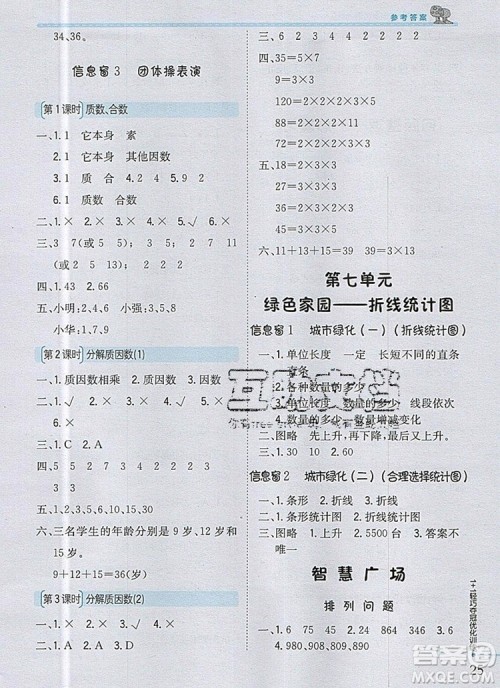 参考答案
34、36。
信息窗3 团体操表演
第1课时 质数、合数
一、1.1 它本身 素
2.1 它本身 其他因数
3.1 质 合 4.2 2 5.9 2
二、1.× 2.× 3.× 4.× 5.√ 6.×
三、3 7(或5 11) 2 7 13(或
2 5 15) 2 13
四、1.43 2.66
五、小明:
小华:
第2课时 分解质因数(1)
一、1.质因数相乘 2.质因数
二、1.√ 2.× 3.× 4.×
三、1.C 2.D 3.A
四、15 3 5 2 27 3 3 3
五、1,2,3,5,6,10,15,30
六、三名学生的年龄分别是9岁、12岁和
15岁。
9+12+15=36(岁)
第3课时 分解质因数(2)
一、1.D 2.C 3.A
二、1.× 2.× 3.√ 4.×
三、6 3 2 2 2 4 2 2 2 2
四、9=3×3
32=2×2×2×2×2
45=3×3×5
120=2×2×2×3×5
16=2×2×2×2
五、18=2×3×3
27=3×3×3
30=2×3×5
39=3×13
六、11+13+15=39(块)
第七单元
绿色家园——折线统计图
信息窗1 城市绿化(一)(折线统计图)
一、1.单位长度 一定 长短不同的直条
直条
2.各种数量的多少
3.单位长度 数量的多少 线段依次
4.数量的多少 数量增减变化
二、1.图略 先上升,再下降。
2.图略
信息窗2 城市绿化(二)(合理选择统计图)
一、1.条形 2.折线 3.折线
二、1.条形统计图 2.折线统计图
三、1.图略 2.上升 3.5500台 4.答案不
唯一。
智慧广场
排列问题
一、1.6 2.27 75 3.24 864 246
4.980,908,890,809
二、1.√ 2.× 3.× 4.√
1+1轻巧夺冠优化训练
25
互联文档
答案圈
MXQE.COM